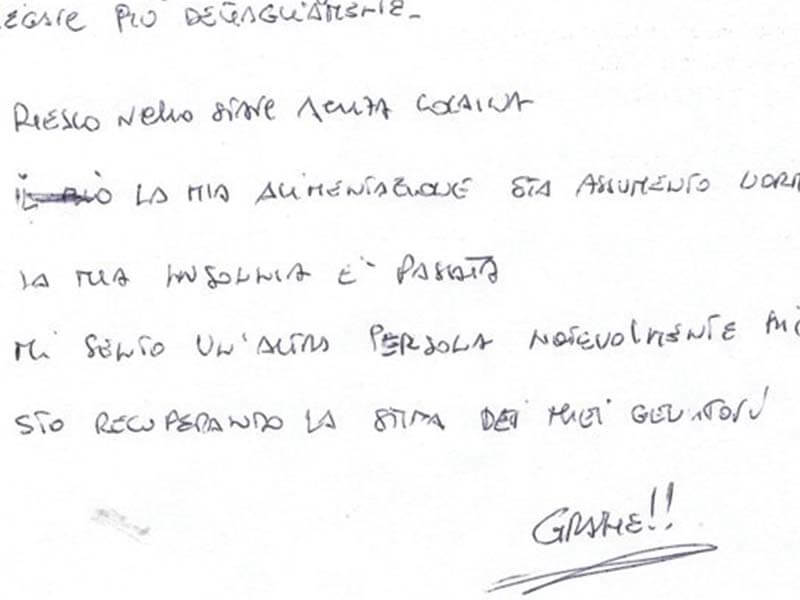 PIÙ DETTAGLIATAMENTE_
RIESCO NELLO STARE SENZA COCAINA
LA MIA ALIMENTAZIONE STA ASSUMENTO
LA MIA INSONNIA E' PASSATA
MI SENTO UN'ALTRA PERSONA NOTEVOLMENTE
STO RECUPERANDO LA STIMA DEI MIEI GENITORI!
GRAZIE!!